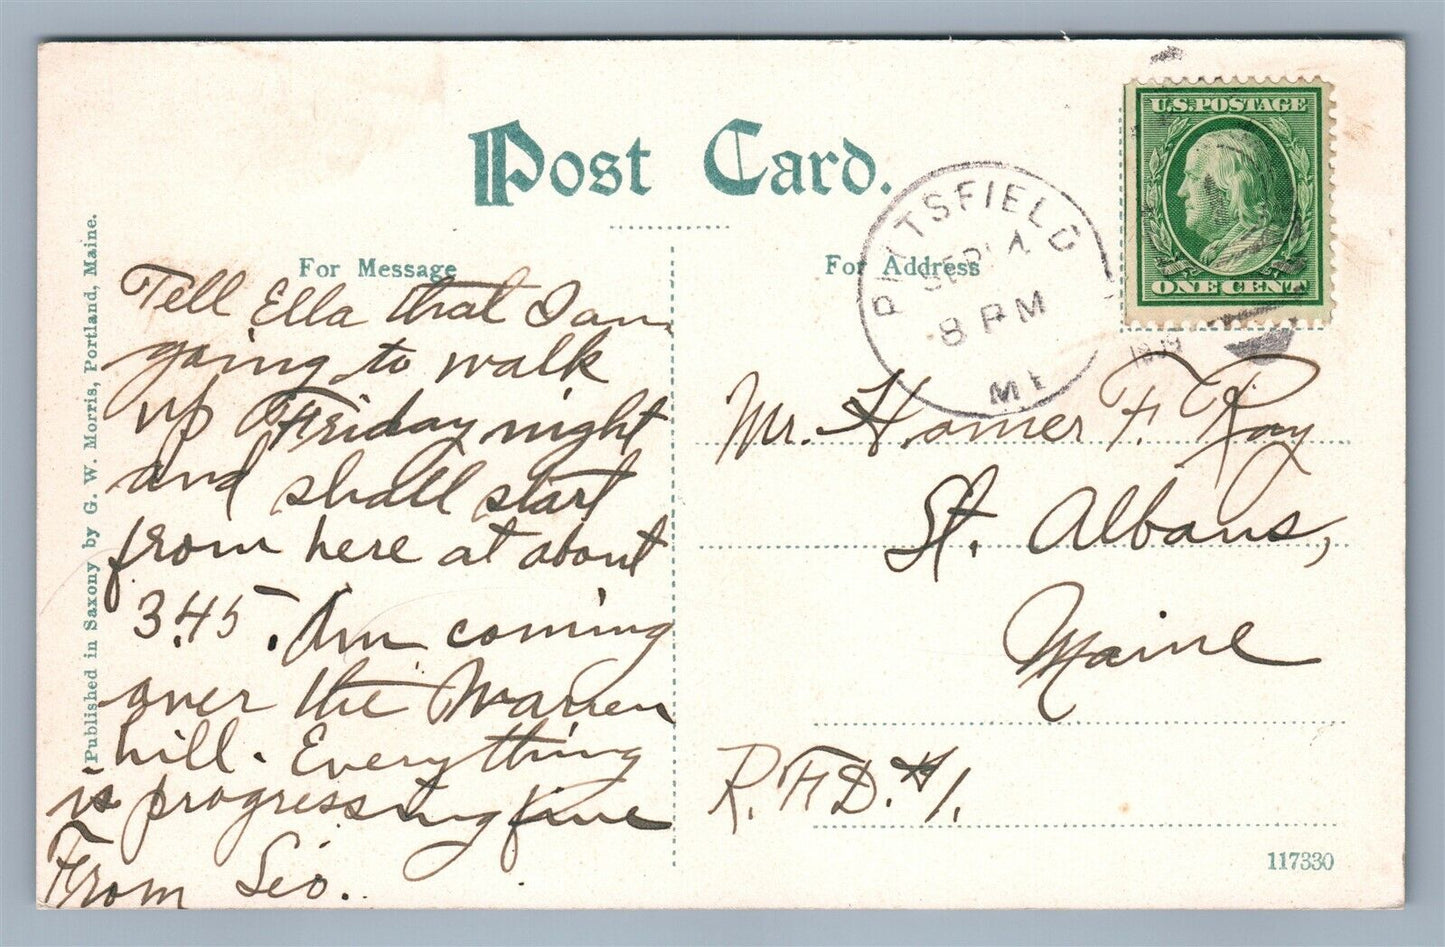 Post Card.
For Message
For Address
Published in Saxony by G. W. Morris, Portland, Maine.
U.S. POSTAGE
ONE CENT
PITTSFIELD
SEP
8 PM
ME
Tell Ella that I am
going to walk
up Friday night
and shall start
from here at about
3.45. Am coming
over the Warren
hill. Everything
is progressing fine
From
Mr. Homer F. Ray
St. Albans,
Maine
R.F.D. #1.
117330